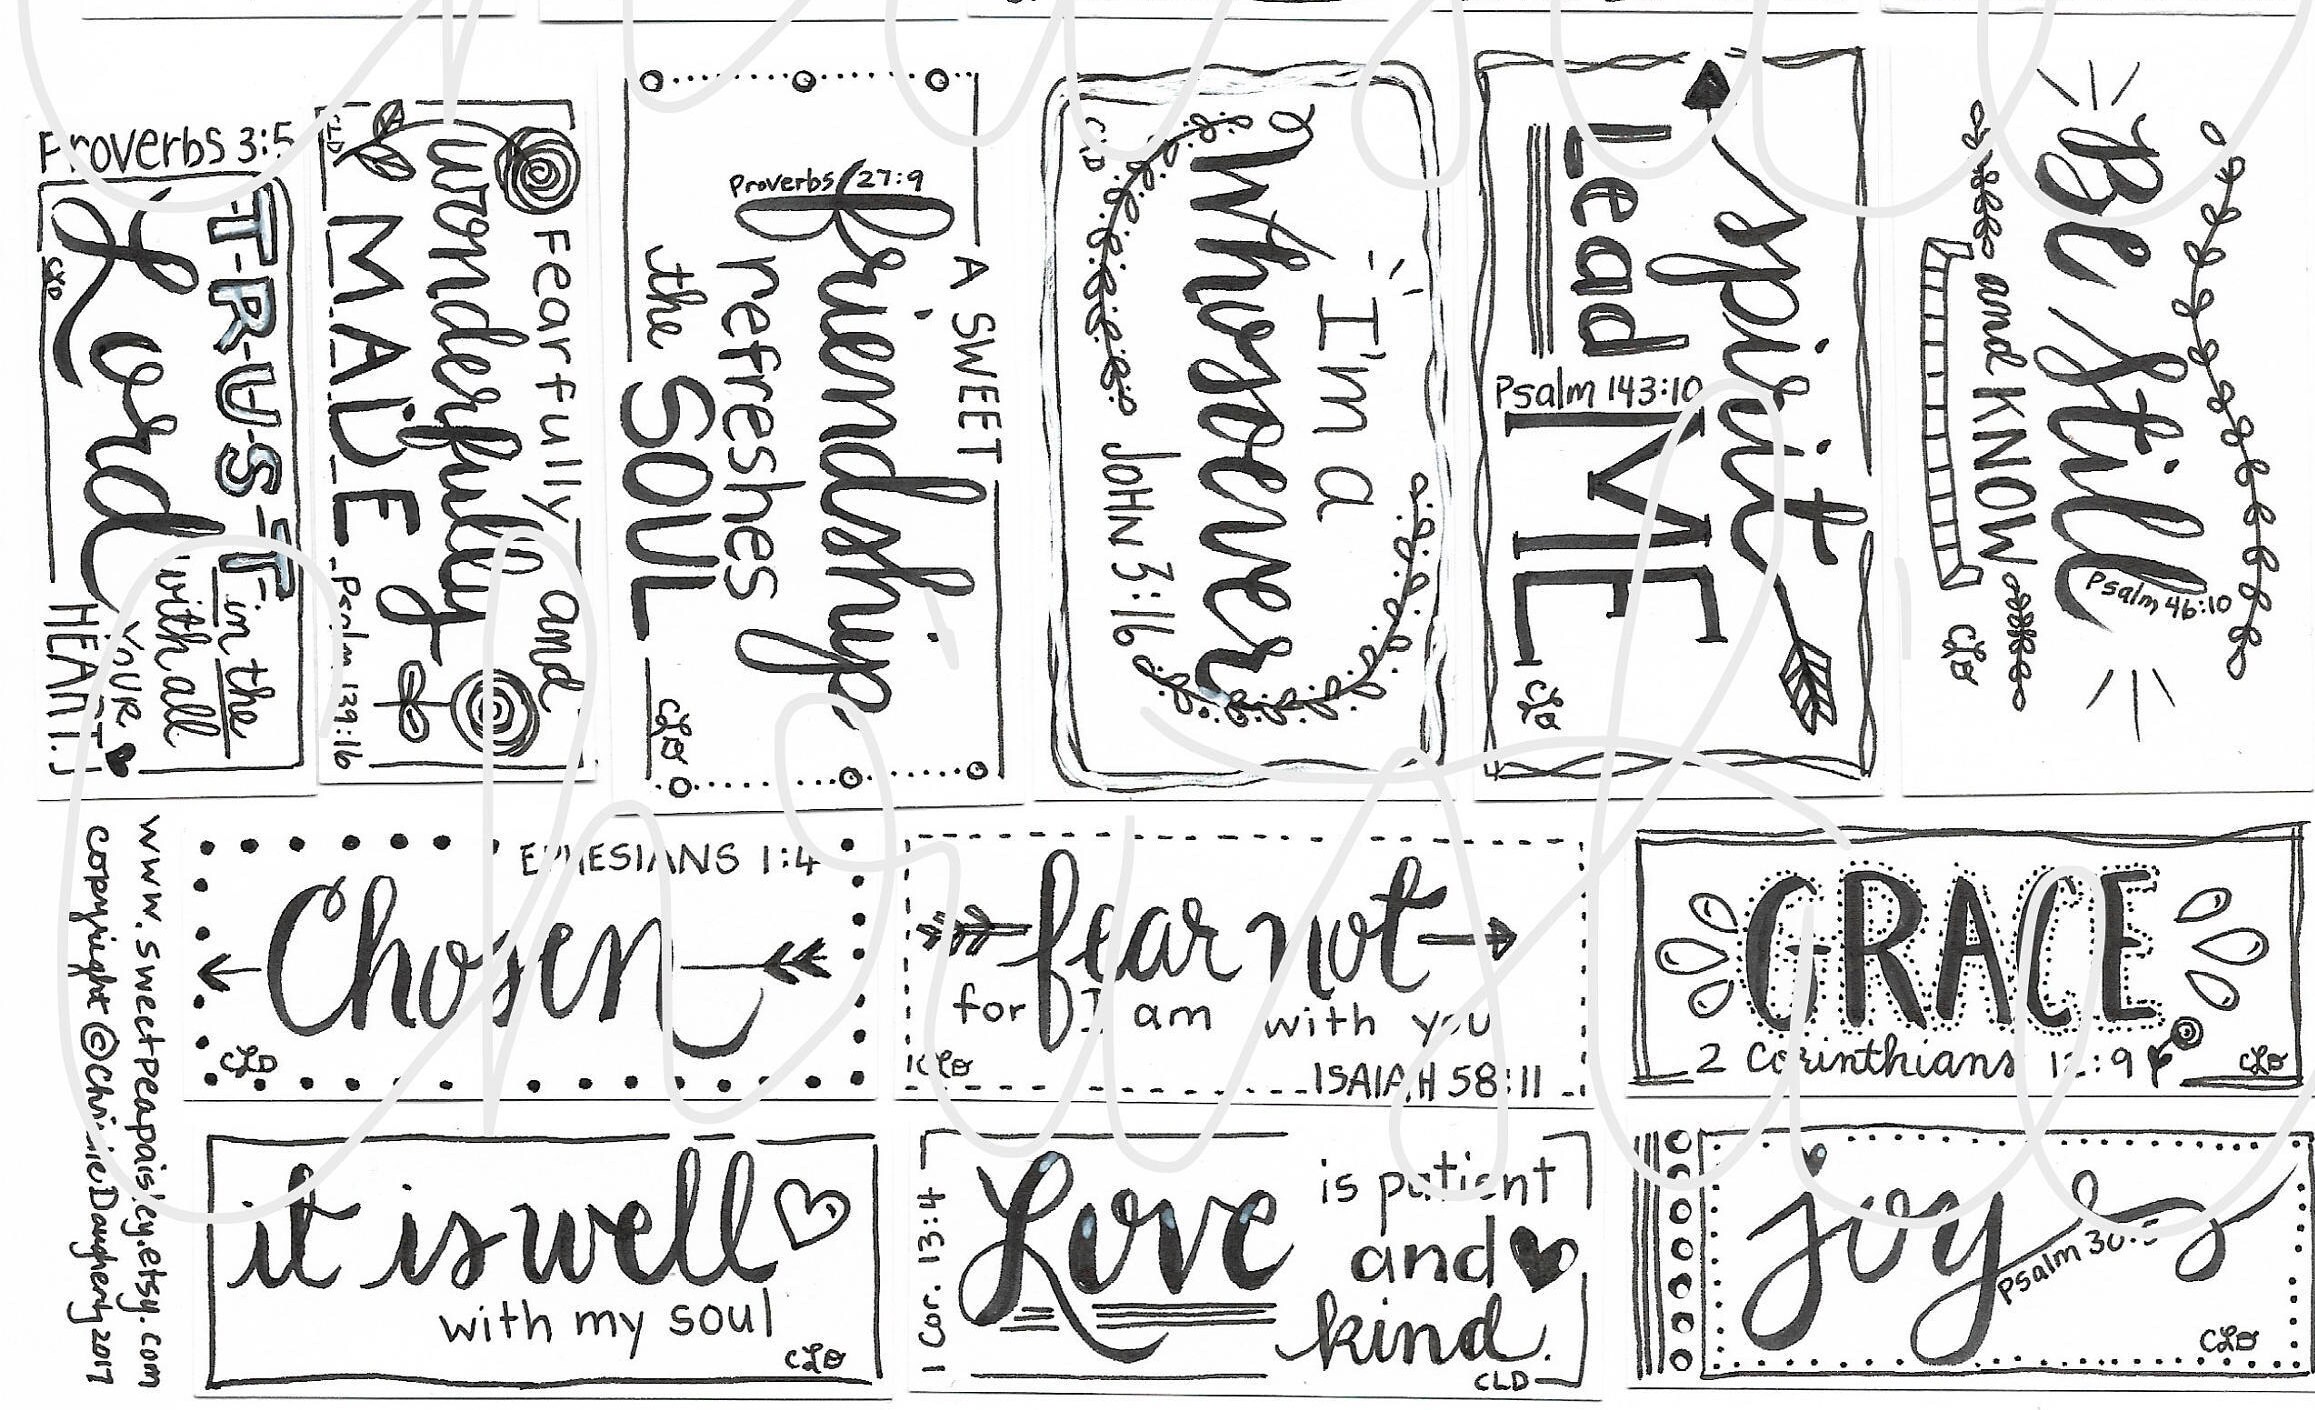 Proverbs 3:5
T-R-U-S-T
in the
Lord
with all
YOUR
HEART.
CLD
Fearfully and
wonderfully
MADE
Psalm 139:16
CLD
A SWEET
friendship
Proverbs 27:9
refreshes
the SOUL
CLD
I'm a
Whosoever
JOHN 3:16
CLD
spirit
Lead ME
Psalm 143:10
CLD
Be Still
Psalm 46:10
and KNOW
CLD
www.sweetpeapaisley.etsy.com
copyright © Christie Daugherty 2017
EPHESIANS 1:4
Chosen
CLD
fear not
for I am with you
ISAIAH 58:11
CLD
GRACE
2 Corinthians 12:9
CLD
it is well
with my soul
CLD
1 Cor. 13:4
Love
is patient
and
kind.
CLD
joy
Psalm 30:5
CLD